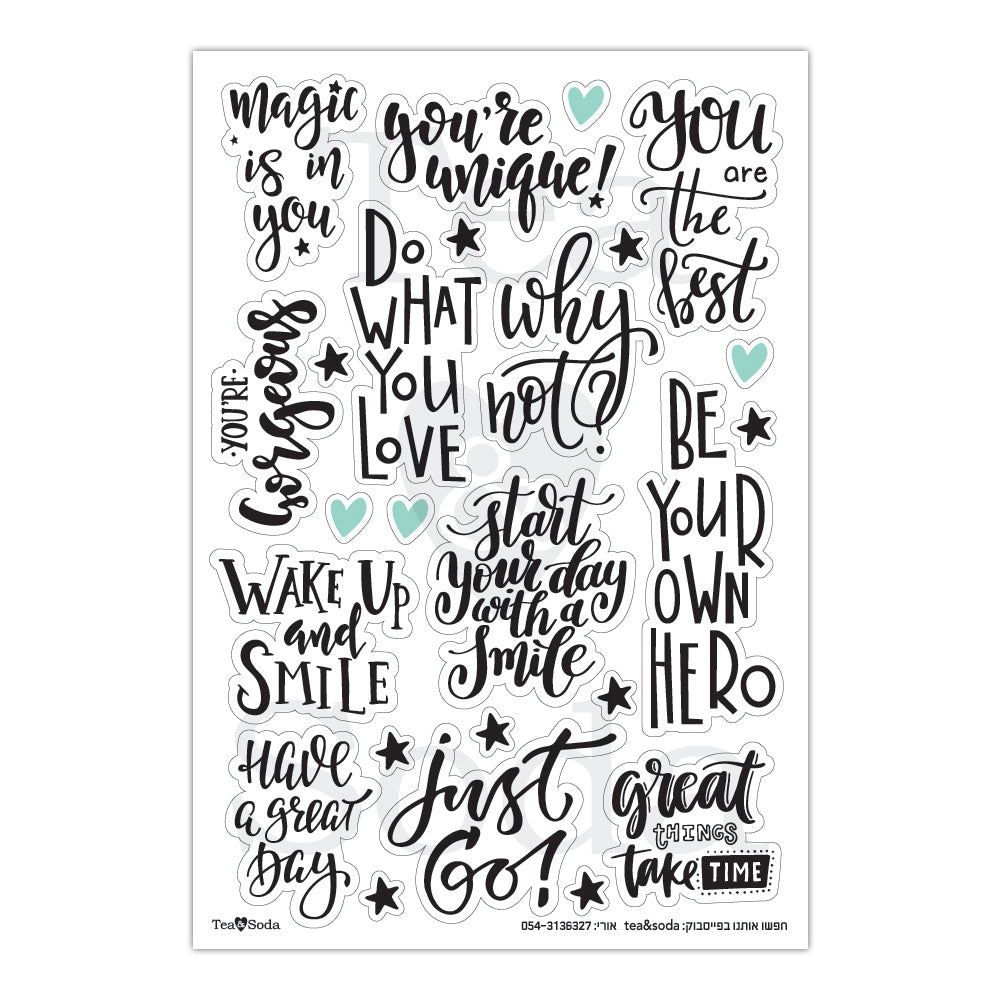 magic
is in
you
you're
unique!
You
are
the
best
Do
WHAT
You
LOVE
why
not?
·YOU'RE·
Gorgeous
BE
YouR
OWN
HERo
start
your day
with a
smile
WAKE UP
and
SMILE
Have
a great
Day
just
Go!
great
THINGS
take TIME
Tea
&
Soda
Tea&Soda
חפשו אותנו בפייסבוק: tea&soda אורי: 054-3136327